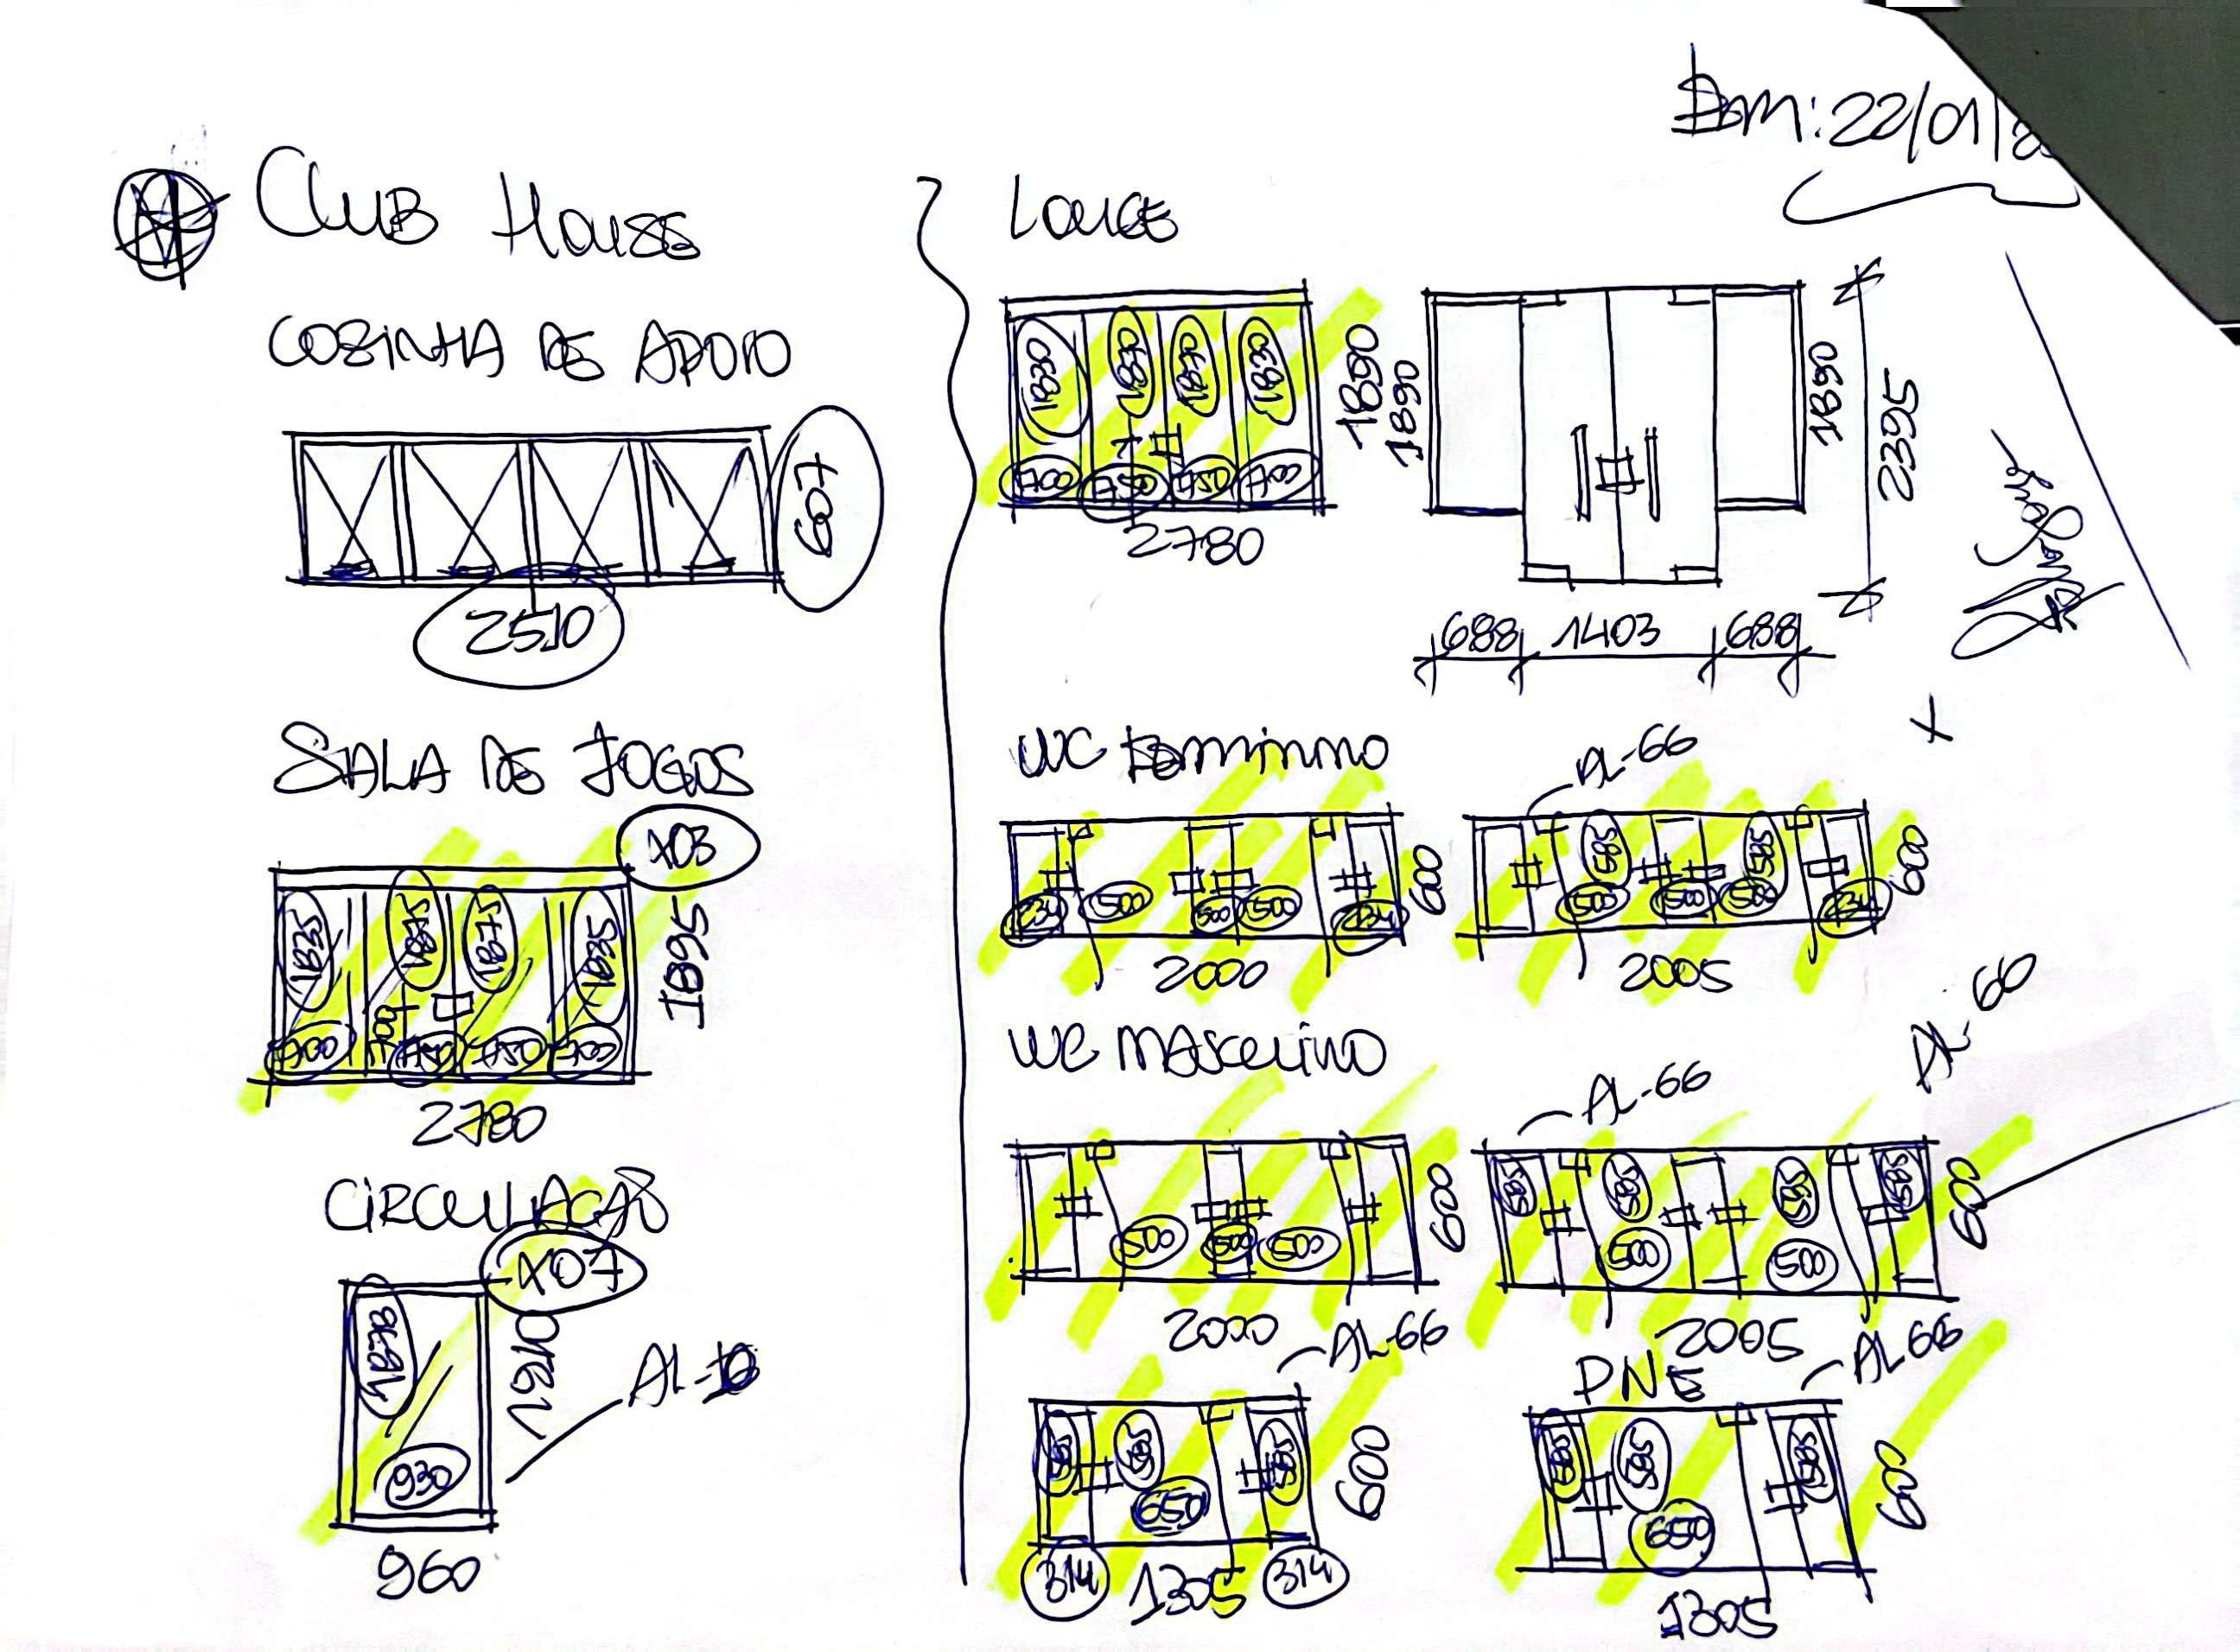 Bom: 22/01/
Club House
COZINHA DE APOIO
607
2510
SALA DE JOGOS
X03
1835
1875
1875
1835
1895
700
700
750
750
700
2780
CIRCULAÇÃO
X07
1878
1910
AL-10
930
960
LOUGE
1830
1870
1870
1830
1890
700
750
750
700
2780
1890
1890
2395
688
1403
688
WC Feminino
234
500
500
500
234
600
2000
AL-66
585
585
500
500
500
234
600
2005
X
WC MASCULINO
500
500
500
600
2000
AL-66
AL-60
585
595
595
585
500
500
600
2005
AL-66
585
595
585
650
600
314
1305
314
PNE
AL 66
580
595
585
650
600
1305